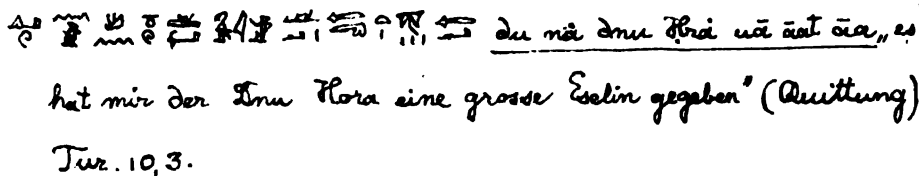 du nȧ dnu Ḥrȧ uā āat āa „es
hat mir der Dnu Hora eine grosse Eselin gegeben" (Quittung)
Tur. 10,3.